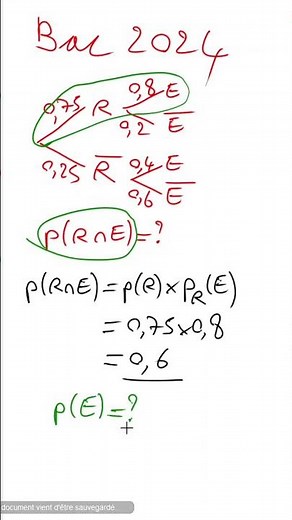 Bac 2024
0,75 R 0,8 E
0,2 E̅
0,25 R̅ 0,4 E
0,6 E̅
p(R∩E)=?
p(R∩E)=p(R)×p_R(E)
=0,75×0,8
=0,6
p(E)=?
document vient d'être sauvegardé